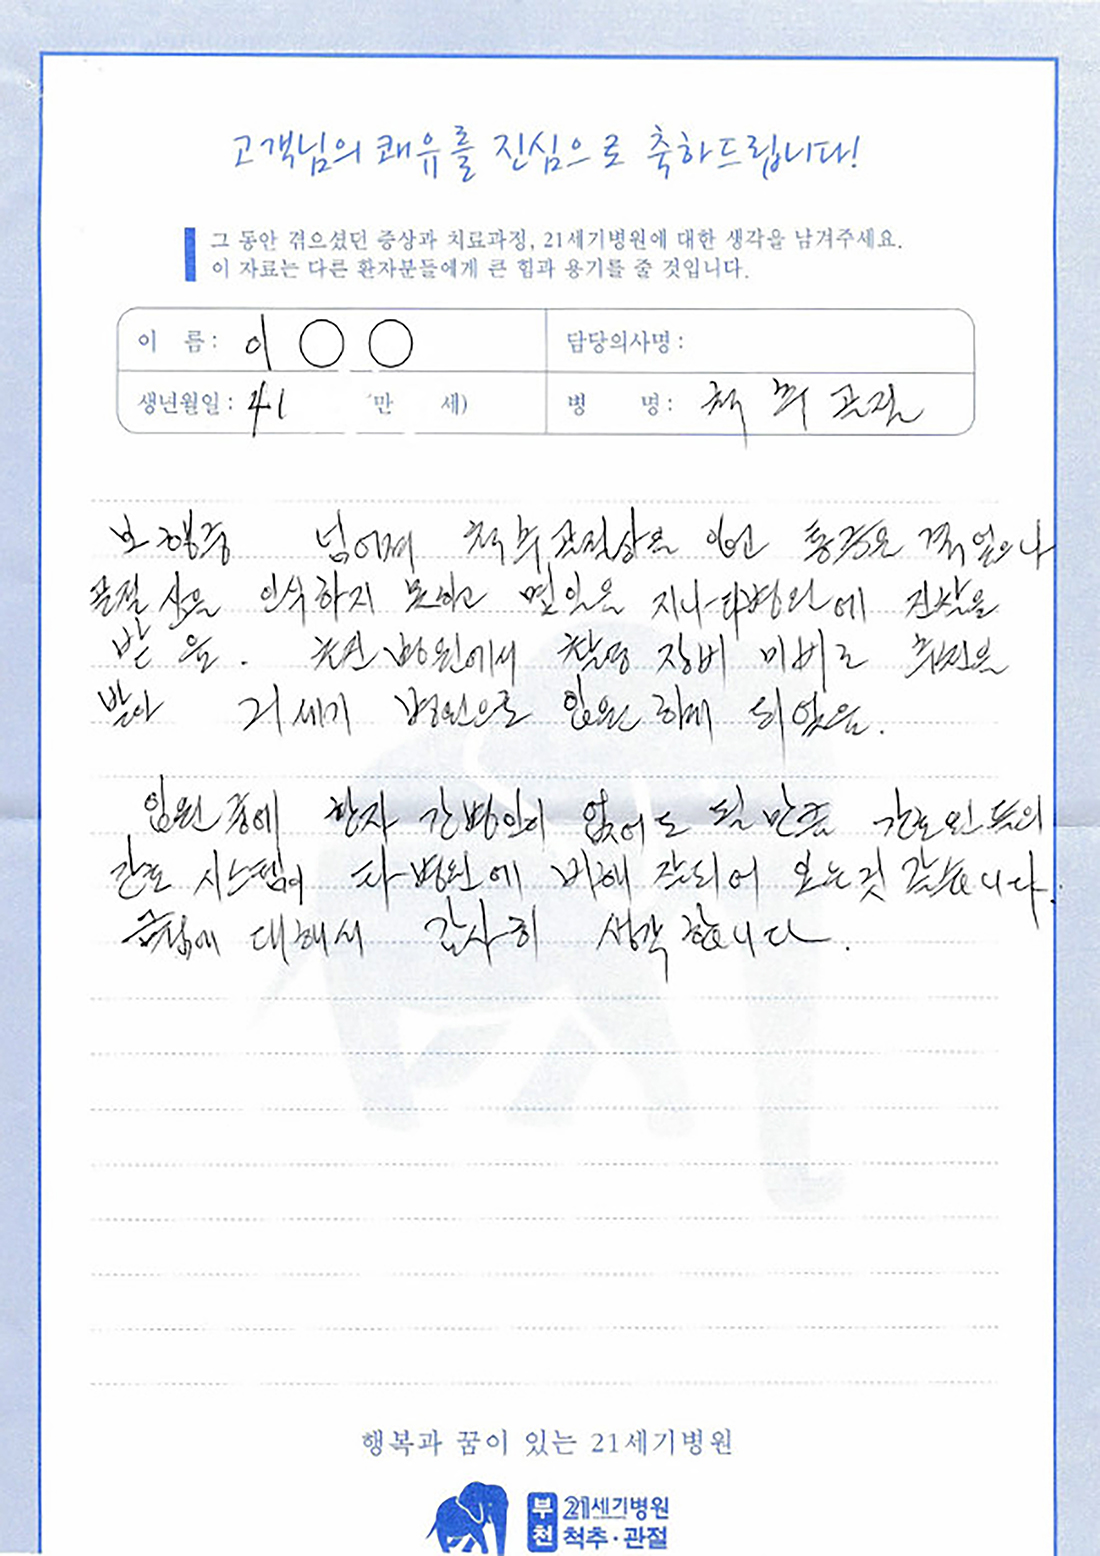 고객님의 쾌유를 진심으로 축하드립니다!
그 동안 겪으셨던 증상과 치료과정, 21세기병원에 대한 생각을 남겨주세요.
이 자료는 다른 환자분들에게 큰 힘과 용기를 줄 것입니다.
이 름: 이 ○ ○
담당의사명:
생년월일: 41 만 세)
병 명: 척추골절
보행중 넘어져 척추골절상을 입고 통증을 겪었으나
골절상을 인식하지 못하고 몇일을 지나 타병원에 진찰을
받음. 병원에서 촬영 장비 미비로 추천을
받아 21세기 병원으로 입원하게 되었음.
입원중에 환자 간병인이 없어도 될만큼 간호원들의
간호 시스템이 타병원에 비해 잘되어 있는것 같습니다.
대해서 감사히 생각합니다.
행복과 꿈이 있는 21세기병원
부천 21세기병원
척추·관절